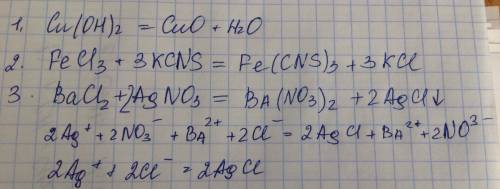 1. Cu(OH)₂ = CuO + H₂O
2. FeCl₃ + 3KCNS = Fe(CNS)₃ + 3KCl
3. BaCl₂ + 2AgNO₃ = BA(NO₃)₂ + 2AgCl↓
2Ag⁺ + 2NO₃⁻ + BA²⁺ + 2Cl⁻ = 2AgCl + BA²⁺ + 2NO³⁻
2Ag⁺ + 2Cl⁻ = 2AgCl